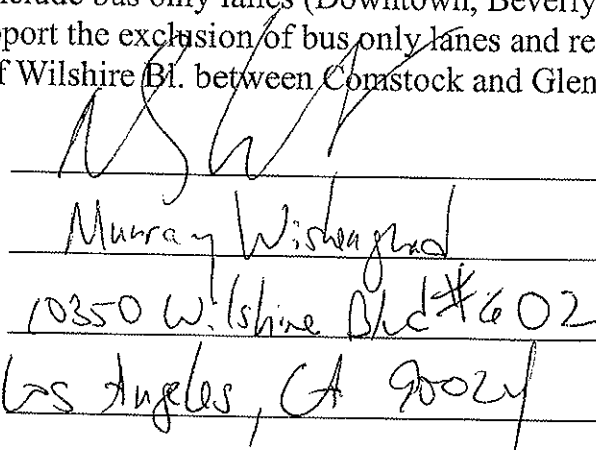 nclude bus only lanes (Downtown, Beverly
pport the exclusion of bus only lanes and re
f Wilshire Bl. between Comstock and Glen
Murray
10350 Wilshire Blvd #602
Los Angeles, CA 90024